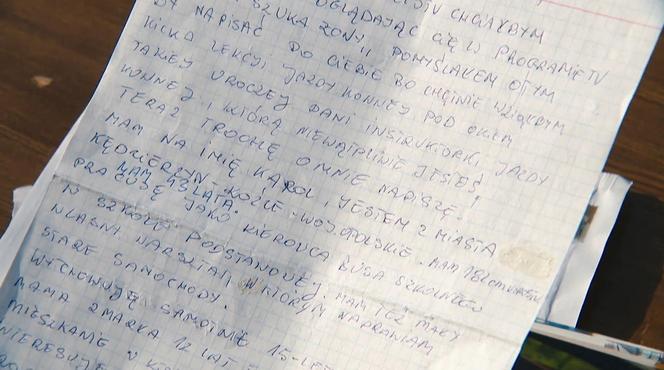 CHCIAŁBYM
OGLĄDAJĄC CIĘ W PROGRAMIE TV
SZUKA ŻONY" POMYŚLAŁEM O TYM
BY NAPISAĆ DO CIEBIE BO CHĘTNIE WZIĄŁBYM
KILKA LEKCJI JAZDY KONNEJ POD OKIEM
TAKIEJ UROCZEJ PANI INSTRUKTORKI JAZDY
KONNEJ I KTÓRĄ NIEWĄTPLIWIE JESTEŚ!
TERAZ TROCHĘ O MNIE NAPISZĘ!
MAM NA IMIĘ KAROL, JESTEM Z MIASTA
KĘDZIERZYN-KOŹLE - WOJ. OPOLSKIE. MAM 181CM
MAM 43 LATA.
PRACUJĘ JAKO KIEROWCA BUSA SZKOLNEGO
W SZKOLE PODSTAWOWEJ. MAM TEŻ MAŁY
WŁASNY WARSZTAT W KTÓRYM NAPRAWIAM
STARE SAMOCHODY.
WYCHOWUJĘ SAMOTNIE 15-LET
MAMA ZMARŁA 12 LAT
MIESZKANIE W